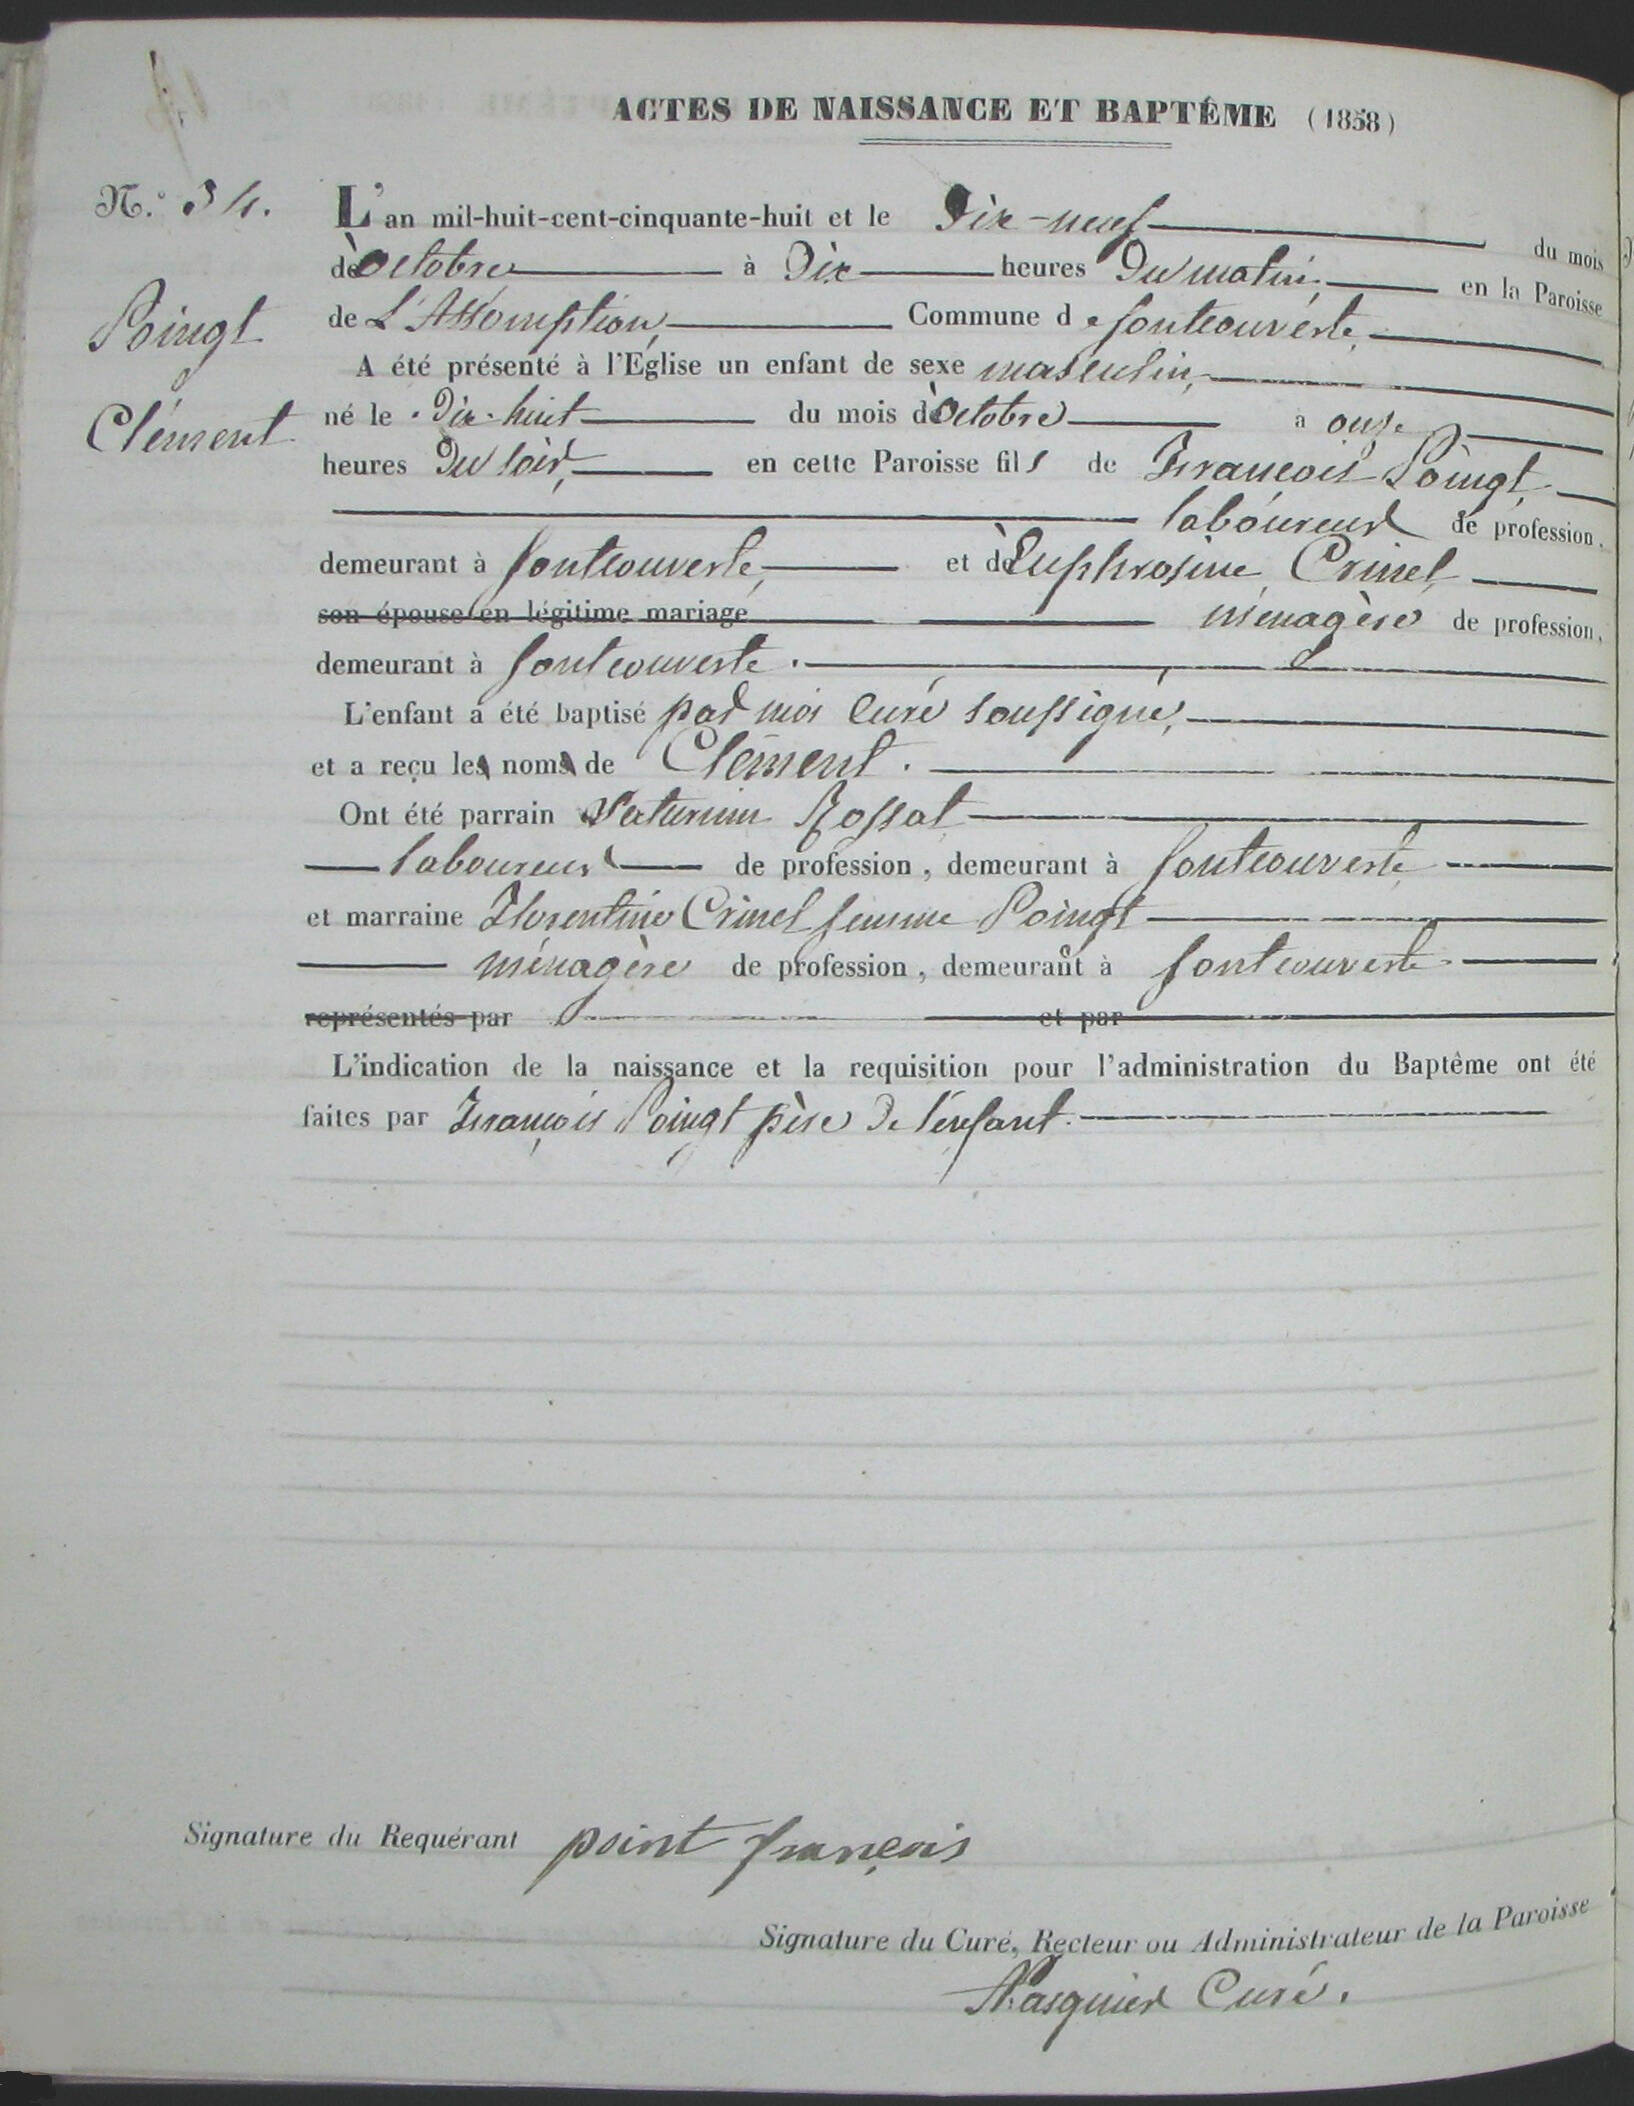 ACTES DE NAISSANCE ET BAPTÊME (1858)
N.º 34.
L'an mil-huit-cent-cinquante-huit et le Dix-neuf du mois
d'octobre à Dix heures Du matin, en la Paroisse
de L'Assomption, Commune de fontcouverte,
Poingt
A été présenté à l'Église un enfant de sexe masculin,
né le Dix-huit du mois d'octobre à onze
Clément
heures Du soir, en cette Paroisse fils de François Poingt,
laboureur de profession,
demeurant à fontcouverte, et d'Euphrosine Crinel,
son épouse en légitime mariage ménagère de profession,
demeurant à fontcouverte.
L'enfant a été baptisé par moi curé soussigné,
et a reçu les noms de Clément.
Ont été parrain Saturnin Rossat
laboureur de profession, demeurant à fontcouverte
et marraine Florentine Crinel femme Poingt
ménagère de profession, demeurant à fontcouverte
représentés par et par
L'indication de la naissance et la requisition pour l'administration du Baptême ont été
faites par François Poingt père De l'enfant.
Signature du Requérant point françois
Signature du Curé, Recteur ou Administrateur de la Paroisse
Curé.